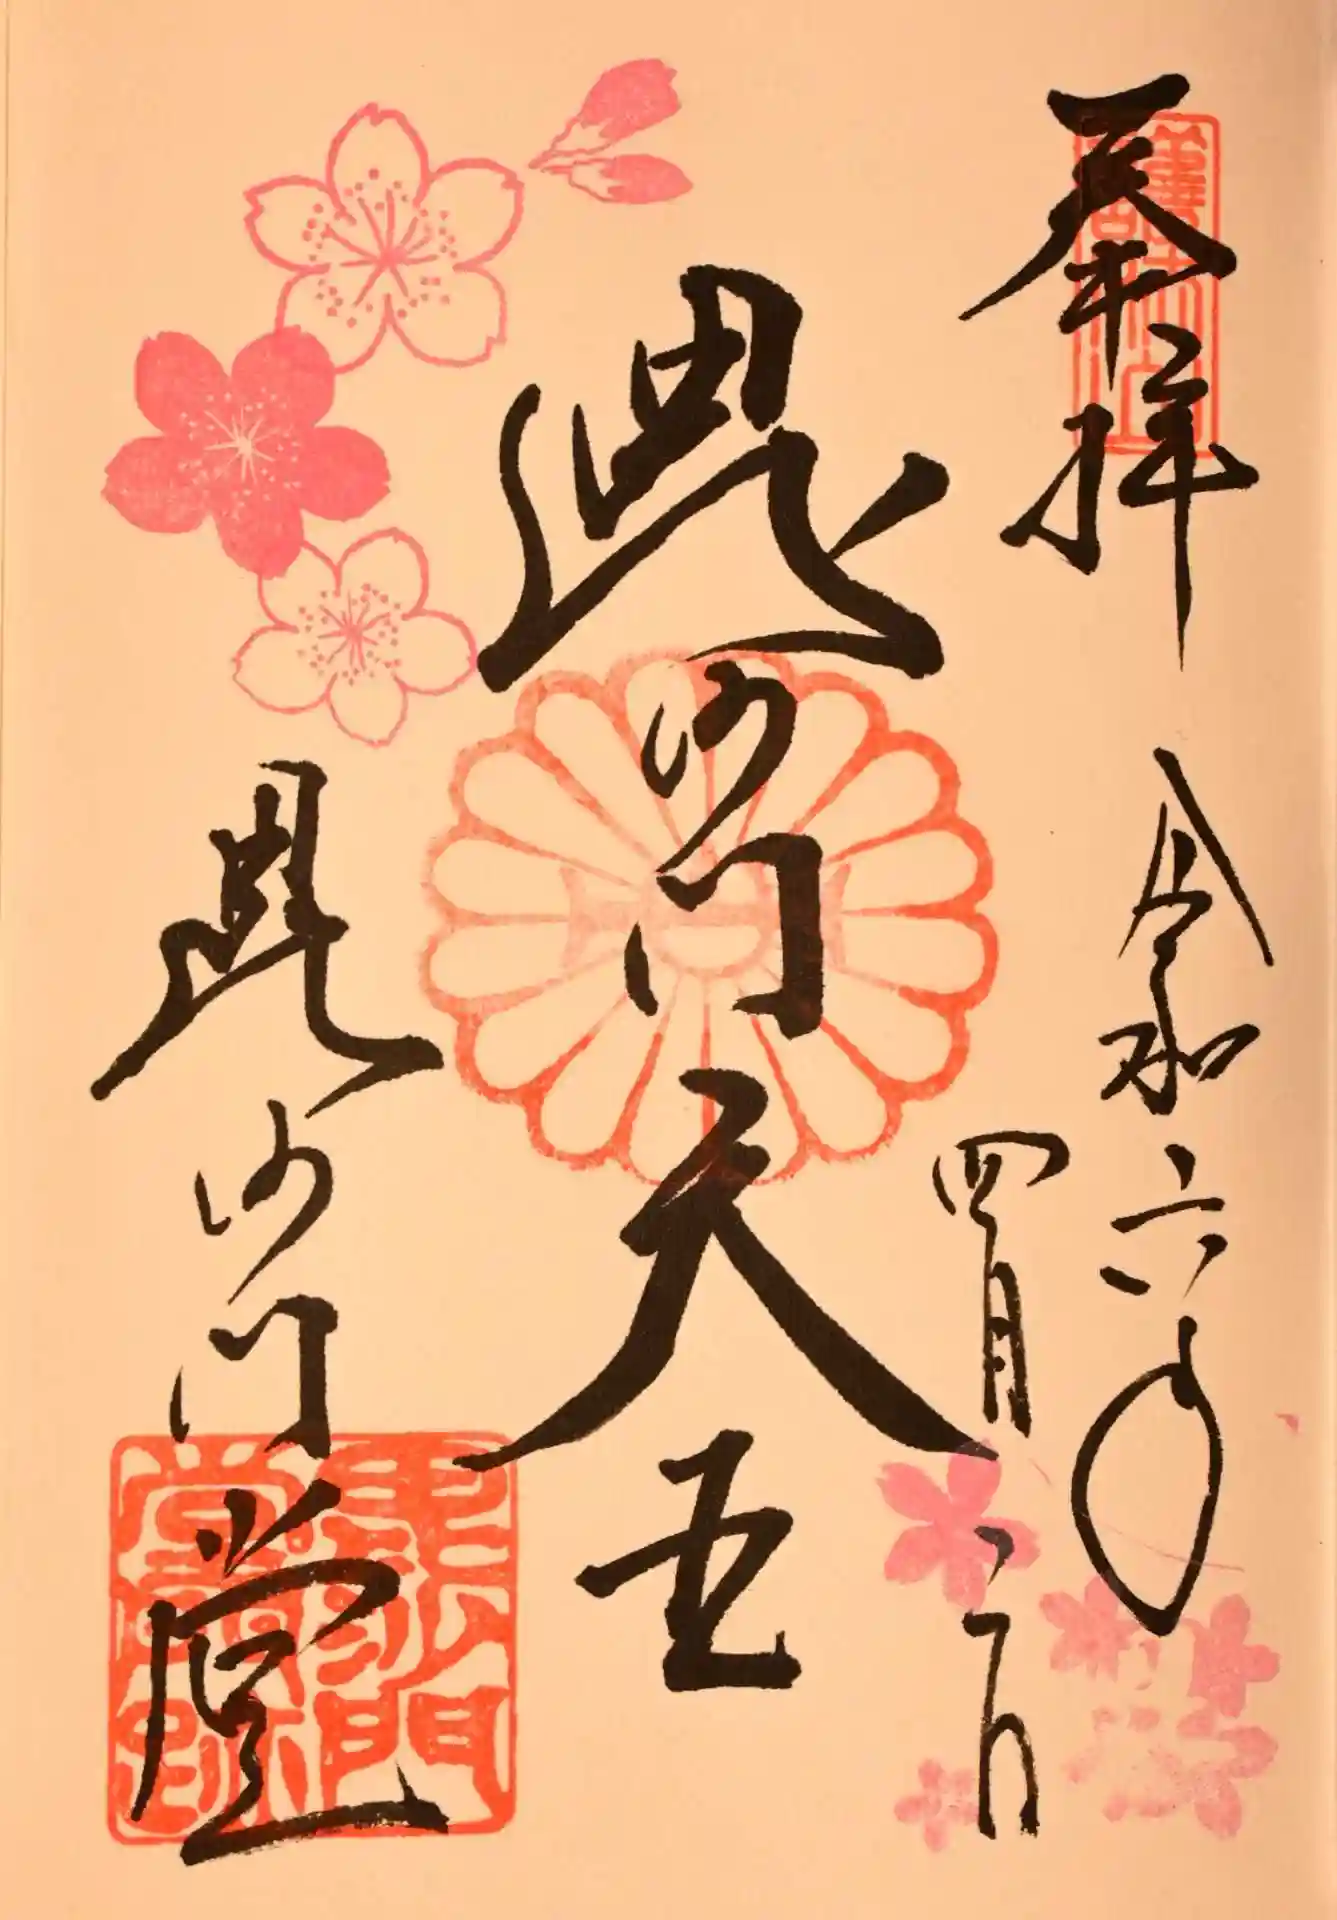 奉拝
令和六年
四月二日
毘沙門天王
毘沙門堂
毘沙門堂跡